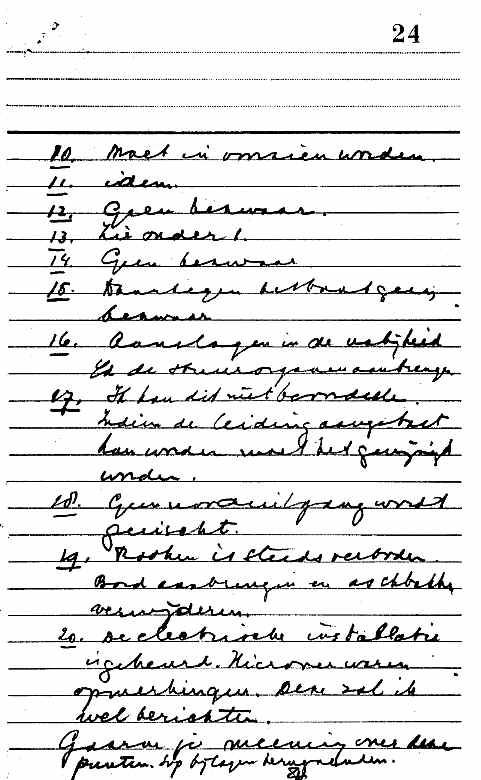 24
10. Moet in voorzien worden.
11. idem.
12. Geen bezwaar.
13. Zie onder 1.
14. Geen bezwaar
15. Daartegen bestaat geen
bezwaar
16. Aanslagen in de nabijheid
v/d de stuurorganen aanbrengen
17. Ik kan dit niet beoordelen.
Indien de leiding aangetast
kan worden moet het gewijzigd
worden.
18. Geen nooduitgang wordt
geëischt.
19. Rooken is steeds verboden
Bord aanbrengen en aschbakken
verwijderen.
20. De electrische installatie
is gekeurd. Hierover waren
opmerkingen. Deze zal ik
wel berichten.
Gaarne je meening over deze
punten. svp bijlagen terugzenden.